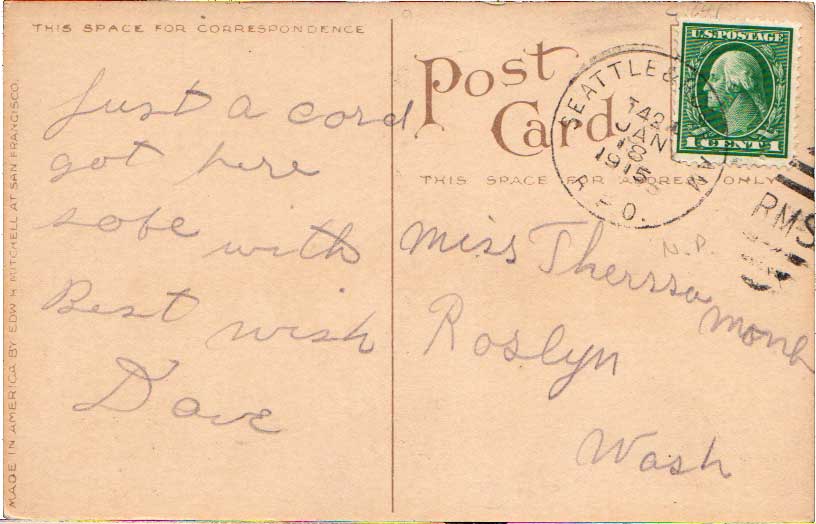 THIS SPACE FOR CORRESPONDENCE
Just a cord
got here
sofe with
Best wish
Dave
MADE IN AMERICA BY EDW. H. MITCHELL AT SAN FRANCISCO.
Post
Card
THIS SPACE FOR ADDRESS ONLY
U.S. POSTAGE
1 CENT 1
SEATTLE &
JAN
18
1915
R.P.O.
RMS
N.P.
Miss Theressa
Roslyn
Wash